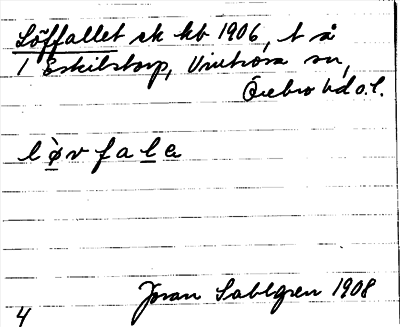 Löffallet ek kb 1906, t å
1 Eskilstorp, Vintrosa sn,
Örebro hd o.l.
lòvfale
Jöran Sahlgren 1908
4